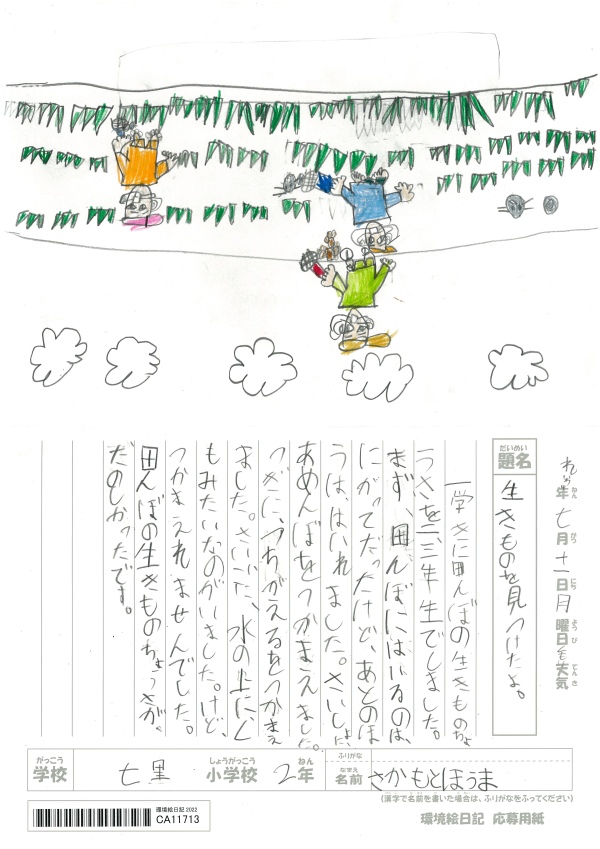 れい四年七月十一日月曜日天気
題名
だいめい
生きものを見つけたよ。
一学きに田んぼの生きものちょ
うさを一、二、三年生でしました。
まず、田んぼにはいるのは、
にがてだったけど、あとのほ
うは、はいれました。さいしょに、
あめんぼをつかまえました。
つぎに、つちがえるをつかまえ
ました。さいごに、水の上に、く
もみたいなのがいました。けど、
つかまえれませんでした。
田んぼの生きものちょうさが、
たのしかったです。
がっこう しょうがっこう ねん ふりがな
学校 七里 小学校 2年 名前 さかもとほうま
なまえ
(漢字で名前を書いた場合は、ふりがなをふってください)
環境絵日記 2022
CA11713
環境絵日記 応募用紙